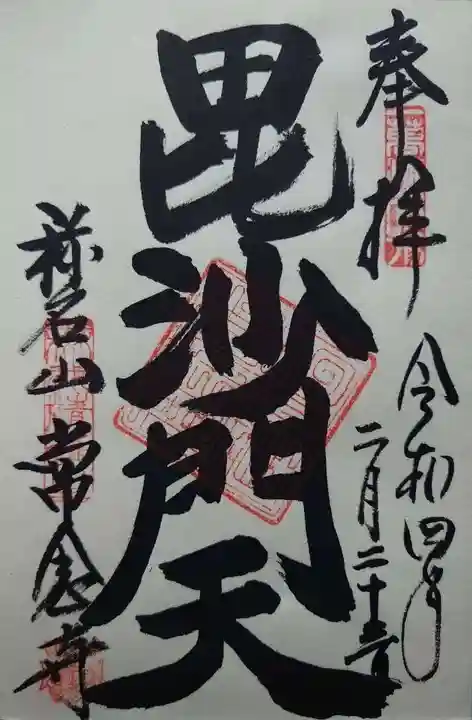 奉拝
令和四年
二月二十三日
毘沙門天
稱名山 常念寺